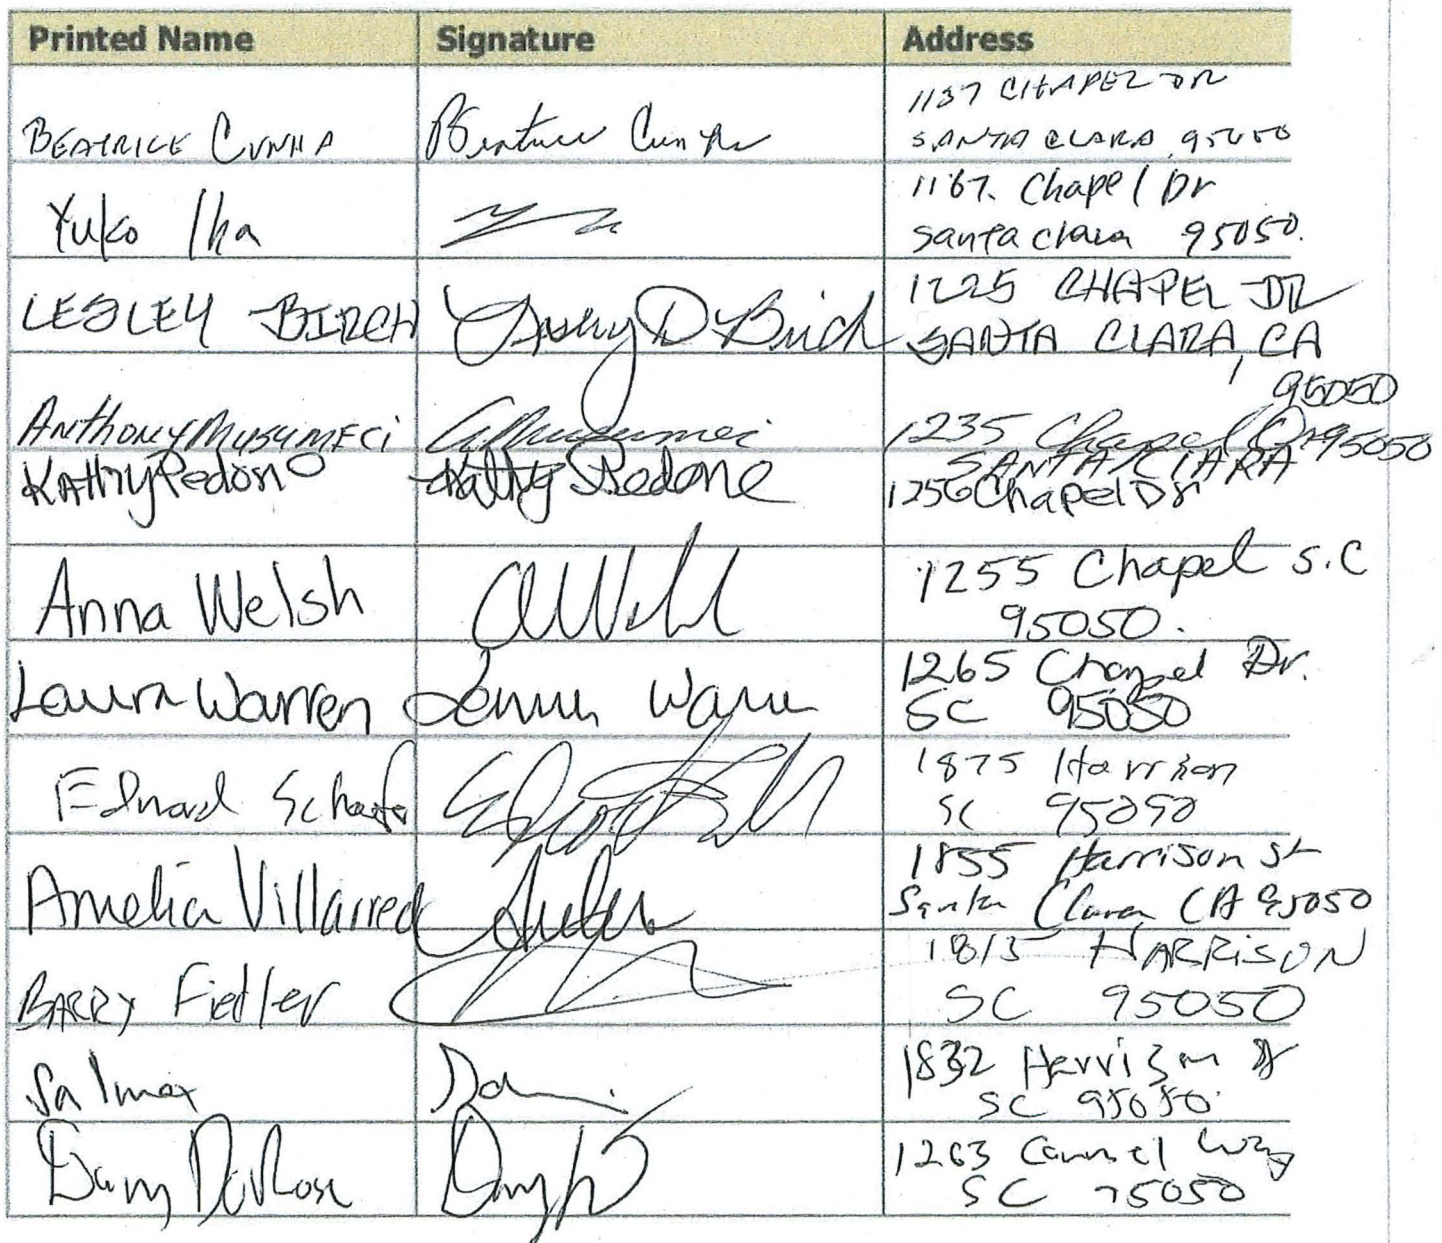 Printed Name Signature Address
1137 CHAPEL DR
BEATRICE CUNHA Beatrice Cunha SANTA CLARA 95050
1167. Chapel Dr
Yuko Iha Santa Clara 95050.
LESLEY BIRCH Lesley D Birch 1225 CHAPEL DR
SANTA CLARA, CA
95050
ANTHONY MUSUMECI AMusumeci 1235 Chapel Dr 95050
SANTA CLARA
Kathy Pedone Kathy Pedone 1256 Chapel Dr
Anna Welsh AWelsh 1255 Chapel S.C
95050.
Laura Warren Laura Warren 1265 Chapel Dr.
SC 95050
Edward Schaefer 1875 Harrison
SC 95050
Amelia Villarreal 1855 Harrison St
Santa Clara CA 95050
1815 HARRISON
BARRY Fiedler SC 95050
Salmax 1832 Harrison St
SC 95050
1263 Carmel Way
SC 95050